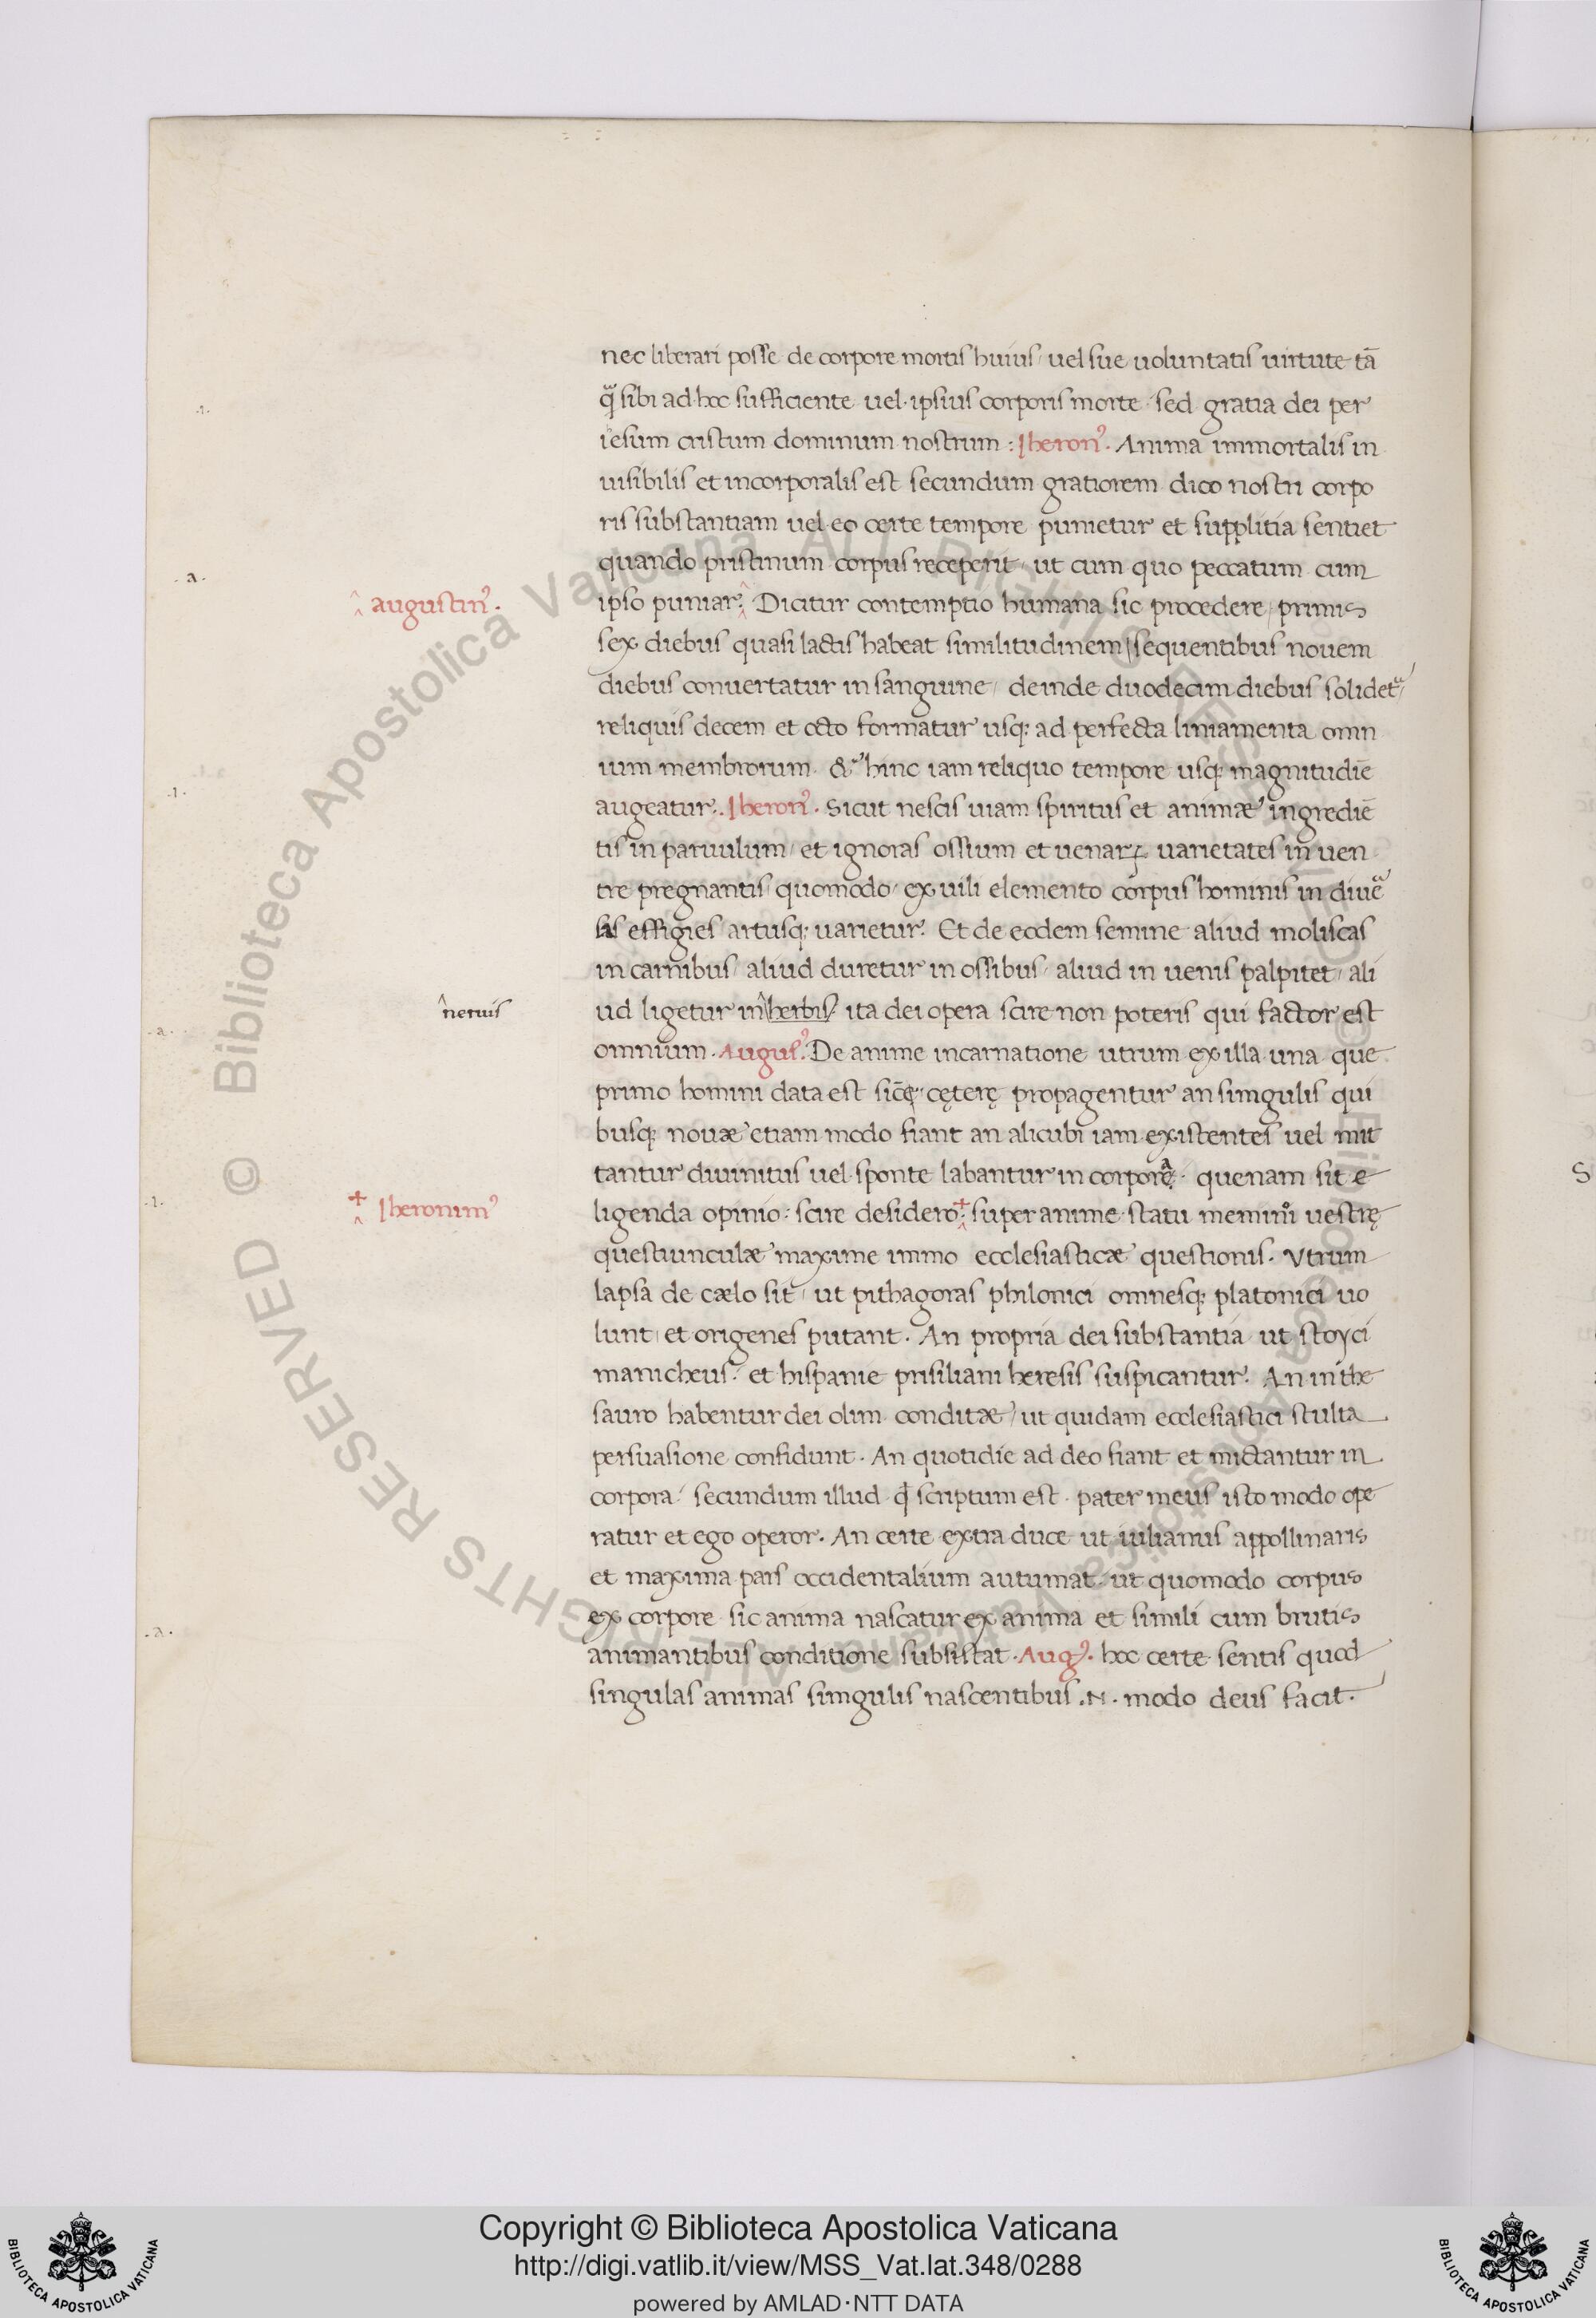 nec liberari posse de corpore mortis huius, uel sue uoluntatis uirtute tā
q̃ sibi ad hoc sufficiente uel ipsius corporis morte sed gratia dei per
.i.
iesum cristum dominum nostrum : Iheronꝰ. Anima immortalis in
uisibilis et incorporalis est secundum gratiorem dico nostri corpo
ris substantiam uel eo certe tempore punietur et supplitia sentiet
quando pristinum corpus receperit, ut cum quo peccatum cum
.a.
augustinꝰ.
ipso puniar. Dicitur contemptio humana sic procedere, primis
sex diebus quasi lactis habeat similitudinem, sequentibus nouem
diebus conuertatur in sanguine, deinde duodecim diebus solidetᵃ,
reliquis decem et octo formatur usq; ad perfecta liniamenta omn
ium membrorum. & hinc iam reliquo tempore usq; magnitudiē
.i.
augeatur. Iheronꝰ. Sicut nescis uiam spiritus et animæ ingrediē
tis in paruulum, et ignoras ossium et uenaꝝ uarietates in uen
tre pregnantis, quomodo, ex uili elemento corpus hominis in diuẽ
sas effigies artusq; uarietur. Et de eodem semine aliud moliscas
in carnibus, aliud duretur in ossibus, aliud in uenis palpitet, ali
neruis
ud ligetur in herbis, ita dei opera scire non poteris qui factor est
.a.
omnium. Augusꝰ. De anime incarnatione utrum ex illa una que
primo homini data est sic cęterę propagentur an simgulis qui
busq; nouæ etiam modo fiant an alicubi iam existentes uel mit
tantur diuinitus uel sponte labantur in corpore quenam sit e
.i.
Iheronimꝰ
ligenda opinio : scire desidero. super anime statu memini uestrę
questiunculæ maxime immo ecclesiasticæ questionis. Vtrum
lapsa de cælo sit, ut pithagoras philonici omnesq; platonici uo
lunt, et origenes putant. An propria dei substantia ut stoyci
manicheus, et hispanie prisiliani heresis suspicantur. An in the
sauro habentur dei olim conditæ, ut quidam ecclesiastici stulta
persuasione confidunt. An quotidie ad deo fiant et mictantur in
corpora, secundum illud qđ scriptum est. pater meus isto modo ope
ratur et ego operor. An certe extra duce ut iulianus appollinaris
et maxima pars occidentalium autumat, ut quomodo corpus
ex corpore sic anima nascatur ex anima et simili cum brutis
.a.
animantibus conditione subsistat. Augꝰ. hoc certe sentis quod
singulas animas simgulis nascentibus .N. modo deus facit.
© Biblioteca Apostolica Vaticana ALL RIGHTS RESERVED
© Biblioteca Apostolica Vaticana ALL RIGHTS RESERVED
Copyright © Biblioteca Apostolica Vaticana
http://digi.vatlib.it/view/MSS_Vat.lat.348/0288
powered by AMLAD·NTT DATA
BIBLIOTECA APOSTOLICA VATICANA
BIBLIOTECA APOSTOLICA VATICANA